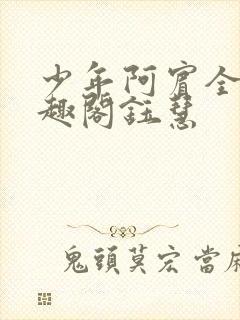 少年阿賓全
趣閣鈺慧
鬼頭莫宏當麻